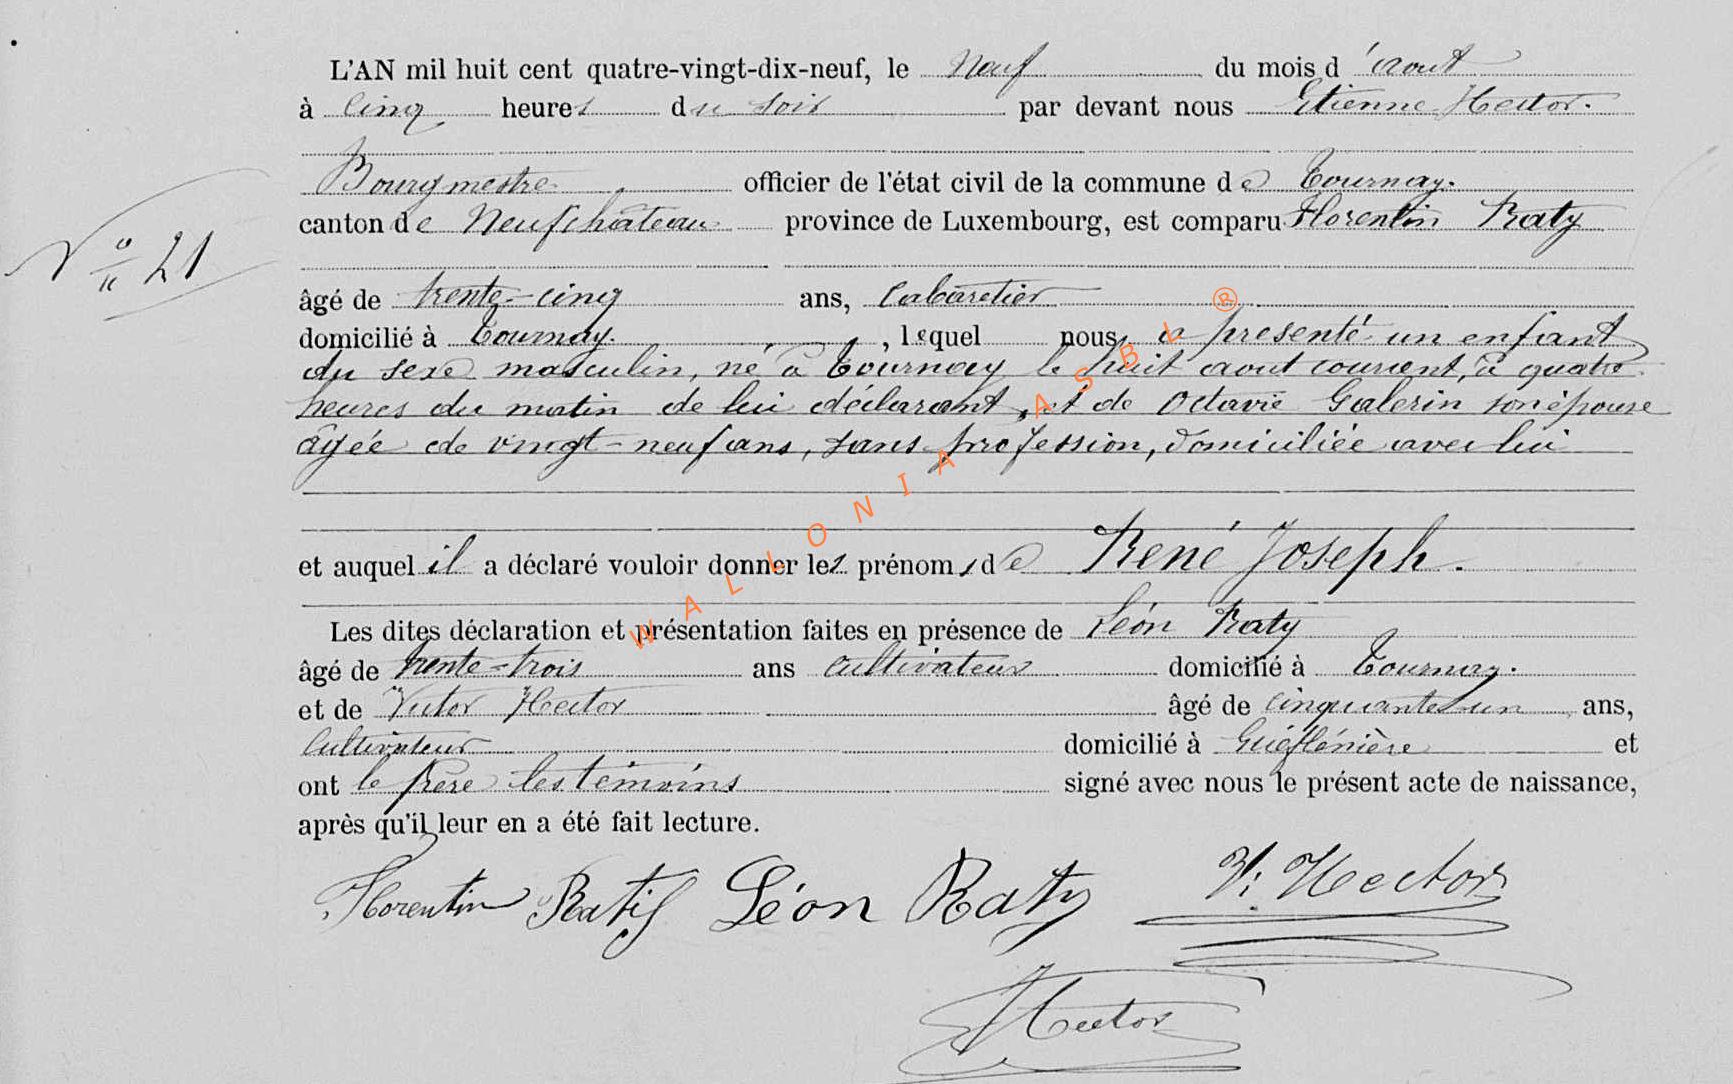 L'AN mil huit cent quatre-vingt-dix-neuf, le Neuf du mois d'aout
à Cinq heures du soir par devant nous Etienne Hector.
Bourgmestre officier de l'état civil de la commune de Tournay.
canton de Neufchâteau province de Luxembourg, est comparu Florentin Raty
N° 21
âgé de trente-cinq ans, Cabaretier
domicilié à Tournay. , lequel nous a presenté un enfant
du sexe masculin, né à Tournay le huit aout courent, à quatre
heures du matin de lui déclarant, et de Octavie Galerin son épouse
âgée de vingt-neuf ans, sans profession, domiciliée avec lui
et auquel il a déclaré vouloir donner les prénoms de René Joseph.
Les dites déclaration et présentation faites en présence de Léon Raty
âgé de trente-trois ans cultivateur domicilié à Tournay.
et de Victor Hector âgé de cinquante un ans,
Cultivateur domicilié à et
ont le Père les témoins signé avec nous le présent acte de naissance,
après qu'il leur en a été fait lecture.
Florentin Léon Raty V. Hector
Hector
WALLONIA ASBL ®